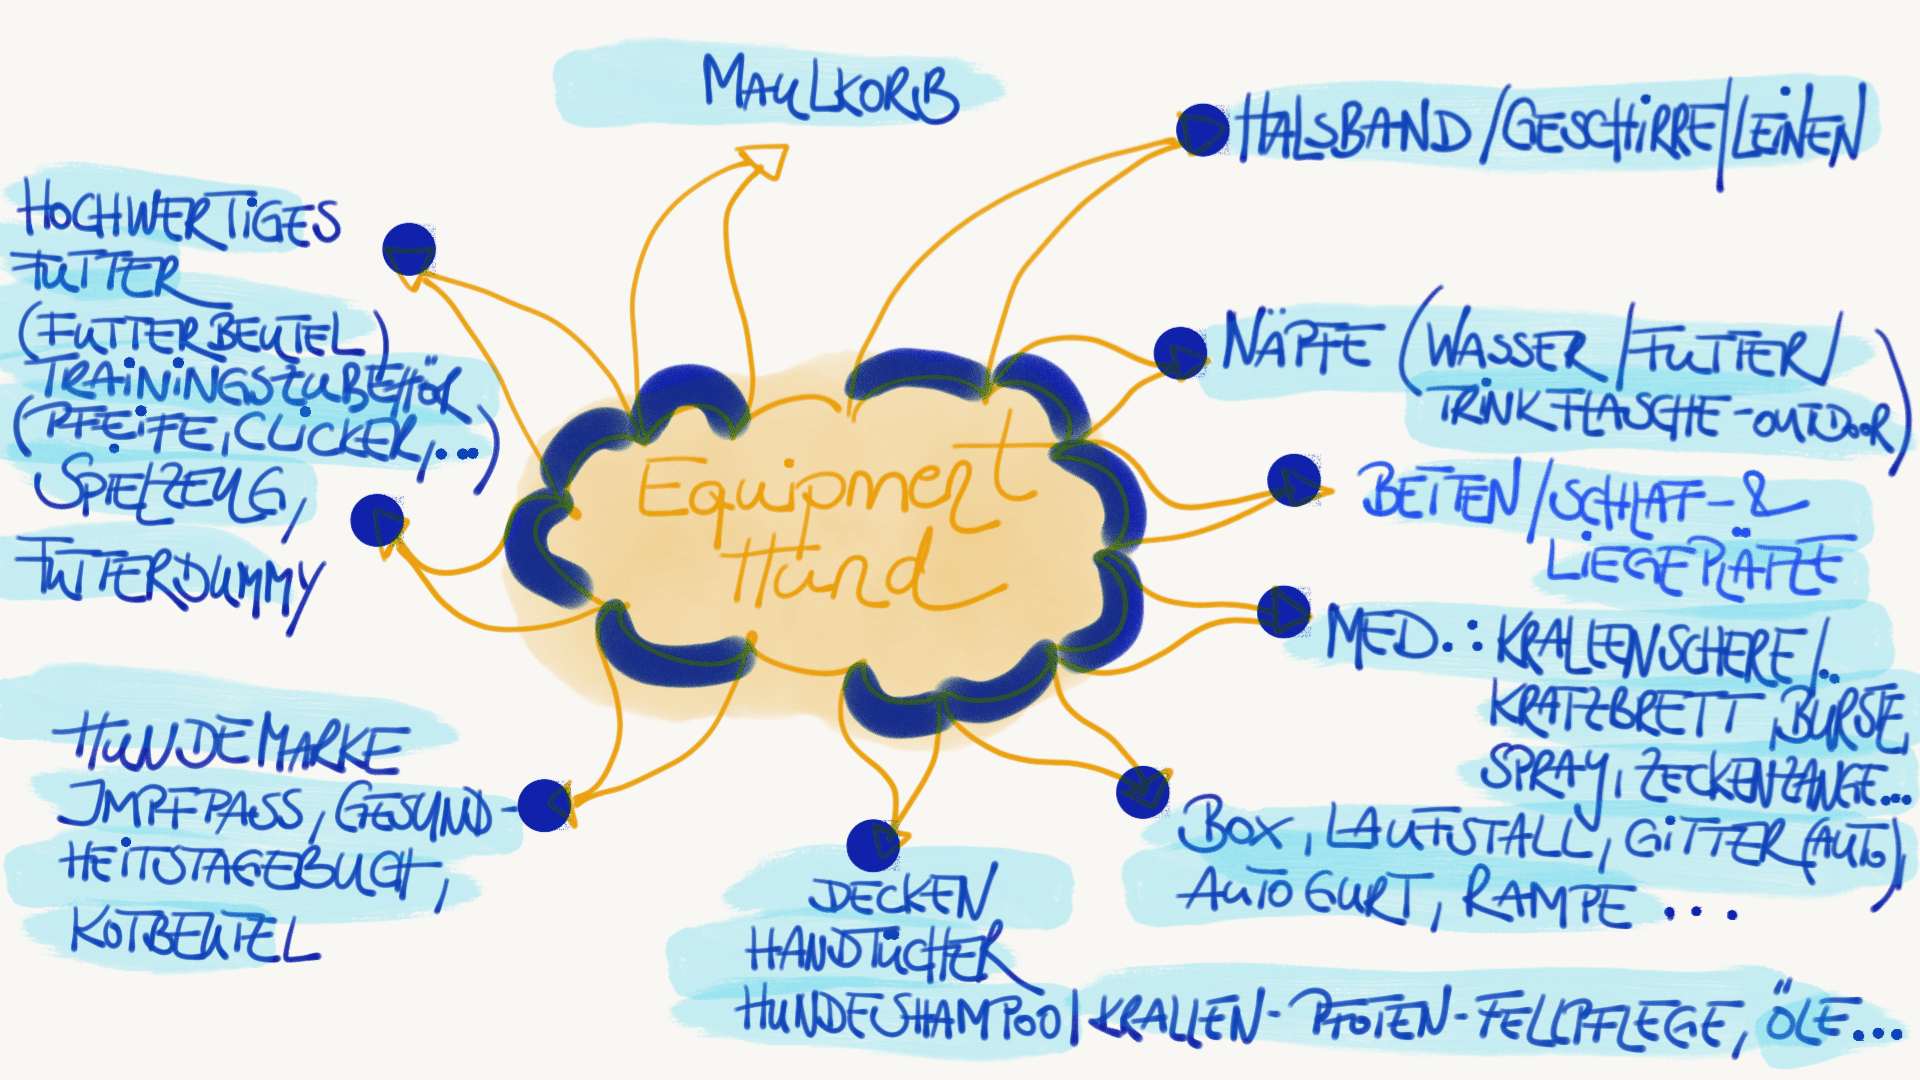 MAULKORB
HALSBAND/GESCHIRRE/LEINEN
HOCHWERTIGES
FUTTER
(FUTTERBEUTEL)
TRAININGSZUBEHÖR
(PFEIFE, CLICKER, ...)
SPIELZEUG,
FUTTERDUMMY
NÄPFE (WASSER/FUTTER/
TRINKFLASCHE-OUTDOOR)
BETTEN/SCHLAF- &
LIEGEPLÄTZE
Equipment
Hund
MED.: KRALLENSCHERE/..
KRATZBRETT, BÜRSTE,
SPRAY, ZECKENZANGE...
HUNDEMARKE
IMPFPASS, GESUND-
HEITSTAGEBUCH,
KOTBEUTEL
BOX, LAUFSTALL, GITTER (AUTO),
AUTO GURT, RAMPE ...
DECKEN
HANDTÜCHER
HUNDESHAMPOO | KRALLEN- PFOTEN- FELLPFLEGE, ÖLE...